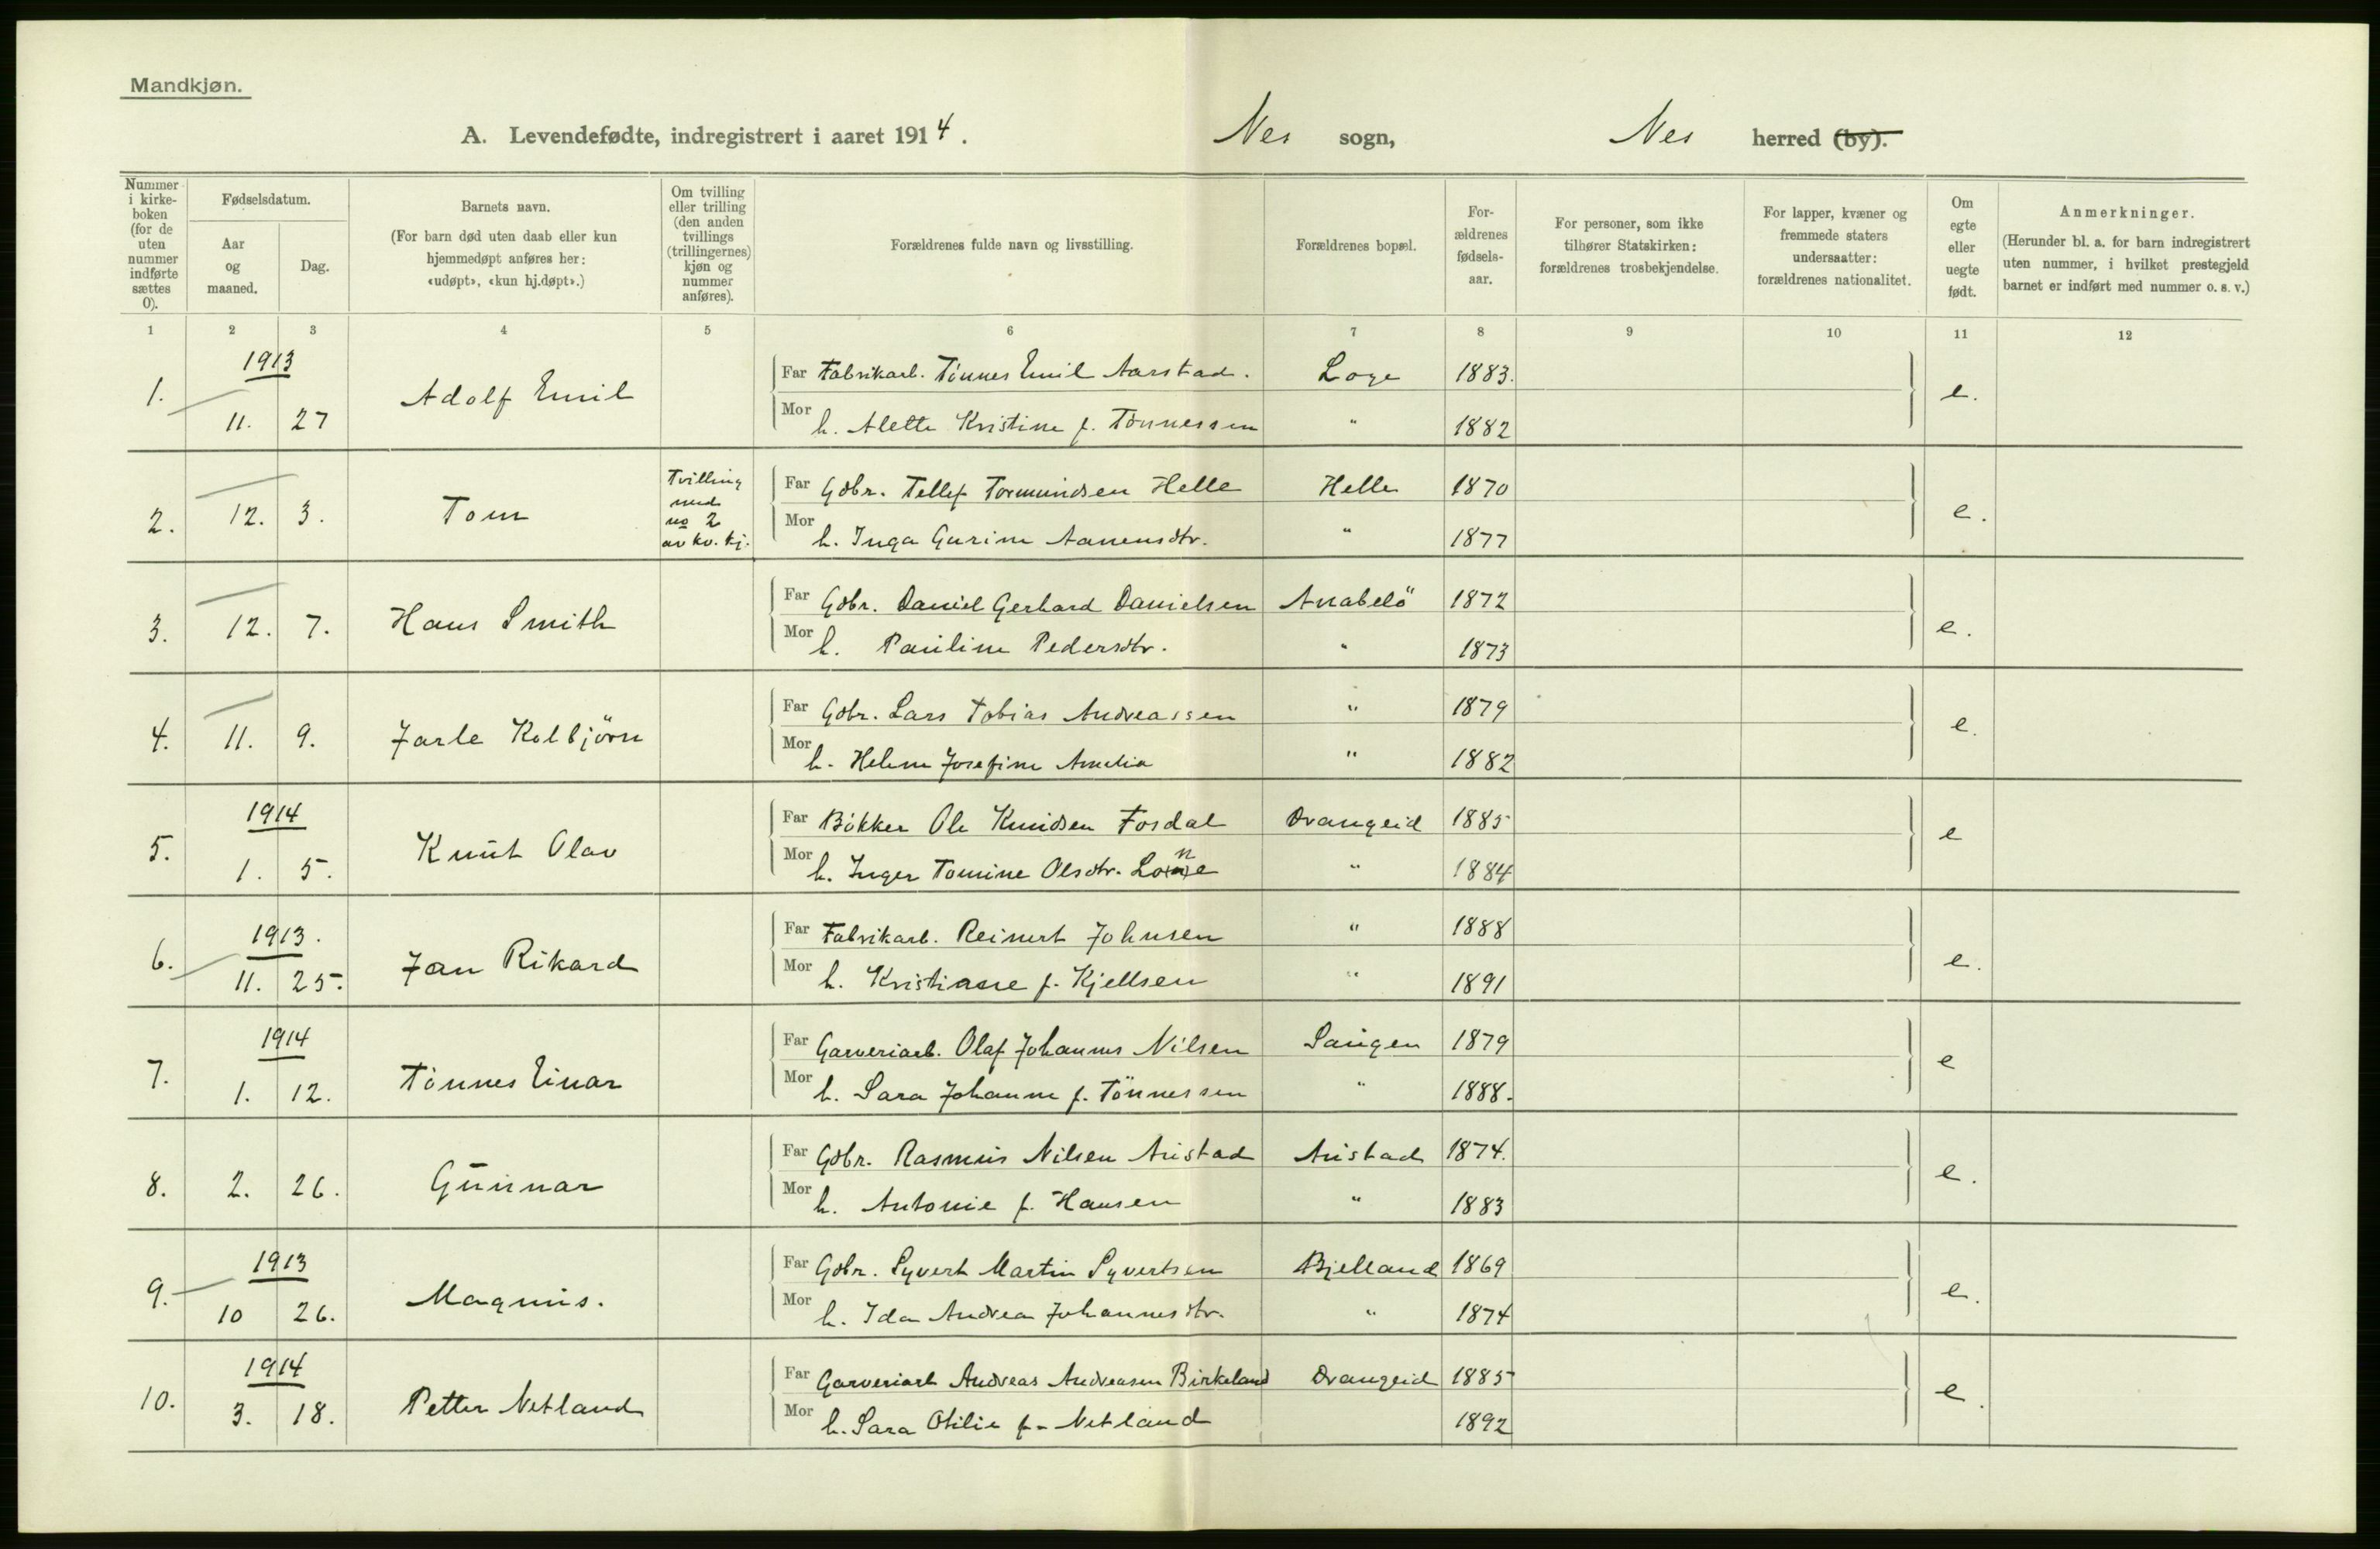 Mandkjøn.
A. Levendefødte, indregistrert i aaret 1914. Nes sogn, Nes herred (by).
Nummer i kirke-boken (for de uten nummer indførte sættes 0).
Fødselsdatum.
Aar og maaned.
Dag.
Barnets navn.
(For barn død uten daab eller kun hjemmedøpt anføres her: «udøpt», «kun hj.døpt».)
Om tvilling eller trilling (den anden tvillings (trillingernes) kjøn og nummer anføres).
Forældrenes fulde navn og livsstilling.
Forældrenes bopæl.
For-ældrenes fødsels-aar.
For personer, som ikke tilhører Statskirken: forældrenes trosbekjendelse.
For lapper, kvæner og fremmede staters undersaatter: forældrenes nationalitet.
Om egte eller uegte født.
Anmerkninger.
(Herunder bl. a. for barn indregistrert uten nummer, i hvilket prestegjeld barnet er indført med nummer o. s. v.)
1 2 3 4 5 6 7 8 9 10 11 12
1913
1. 11. 27 Adolf Emil e.
Far Fabrikarb. Tönnes Emil Aarstad. Loge 1883.
Mor h. Alette Kristine f. Tönnessen " 1882
2. 12. 3. Tom Tvilling med no 2 av kv. kj. e.
Far Gdbr. Tellef Tormundsen Helle Helle 1870
Mor h. Inga Gurine Aanensdtr. " 1877
3. 12. 7. Hans Smith e.
Far Gdbr. Daniel Gerhard Danielsen Anabelö 1872
Mor h. Pauline Pedersdtr. " 1873
4. 11. 9. Jarle Kolbjörn e.
Far Gdbr. Lars Tobias Andreassen " 1879
Mor h. Helene Josefine Amelia " 1882
1914
5. 1. 5. Knut Olav e
Far Bökker Ole Knudsen Fosdal Drangeid 1885
Mor h. Inger Tomine Olsdtr. " 1884
1913.
6. 11. 25. Jan Rikard e.
Far Fabrikarb. Reinert Johnsen " 1888
Mor h. Kristiane f. Kjellsen " 1891
1914
7. 1. 12. Tönnes Einar e
Far Garveriarb. Olaf Johannes Nilsen Laugen 1879
Mor h. Sara Johanne f. Tönnessen " 1888.
8. 2. 26. Gunnar e.
Far Gdbr. Rasmus Nilsen Austad Austad 1874.
Mor h. Antonie f. Hansen " 1883
1913
9. 10 26. Magnus. e.
Far Gdbr. Syvert Martin Syvertsen Bjelland 1869
Mor h. Ida Andrea Johannesdtr. " 1874
1914
10. 3. 18. Petter Netland e.
Far Garveriarb Andreas Andreasen Birkeland Drangeid 1885
Mor h. Sara Otilie f. Netland 1892